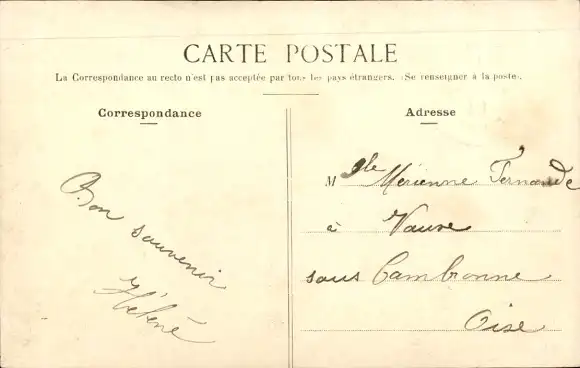 CARTE POSTALE
La Correspondance au recto n'est pas acceptée par tous les pays étrangers. (Se renseigner à la poste).
Correspondance
Adresse
Bon souvenir
Hélène
Mlle Mérienne Fernande
à Vaure
sous Cambronne
Oise